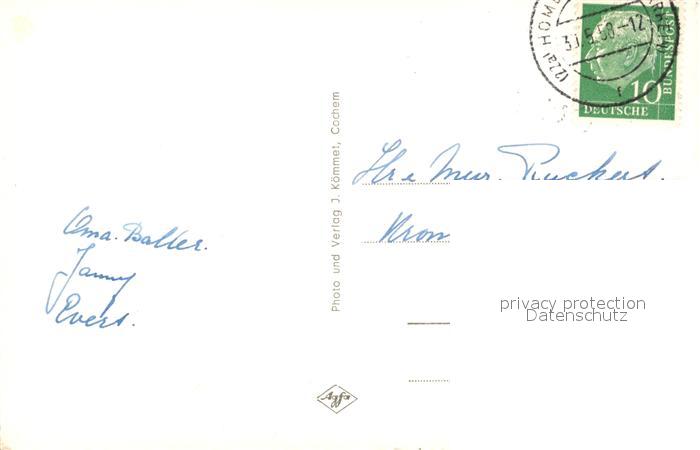 (22a) HOMB
30.5.58-12
f
10
DEUTSCHE
BUNDESPOST
Photo und Verlag J. Kömmet, Cochem
Hr Mevr. Ruckert.
Kron
Oma. Balter.
Janny
Evert.
privacy protection
Datenschutz
Agfa